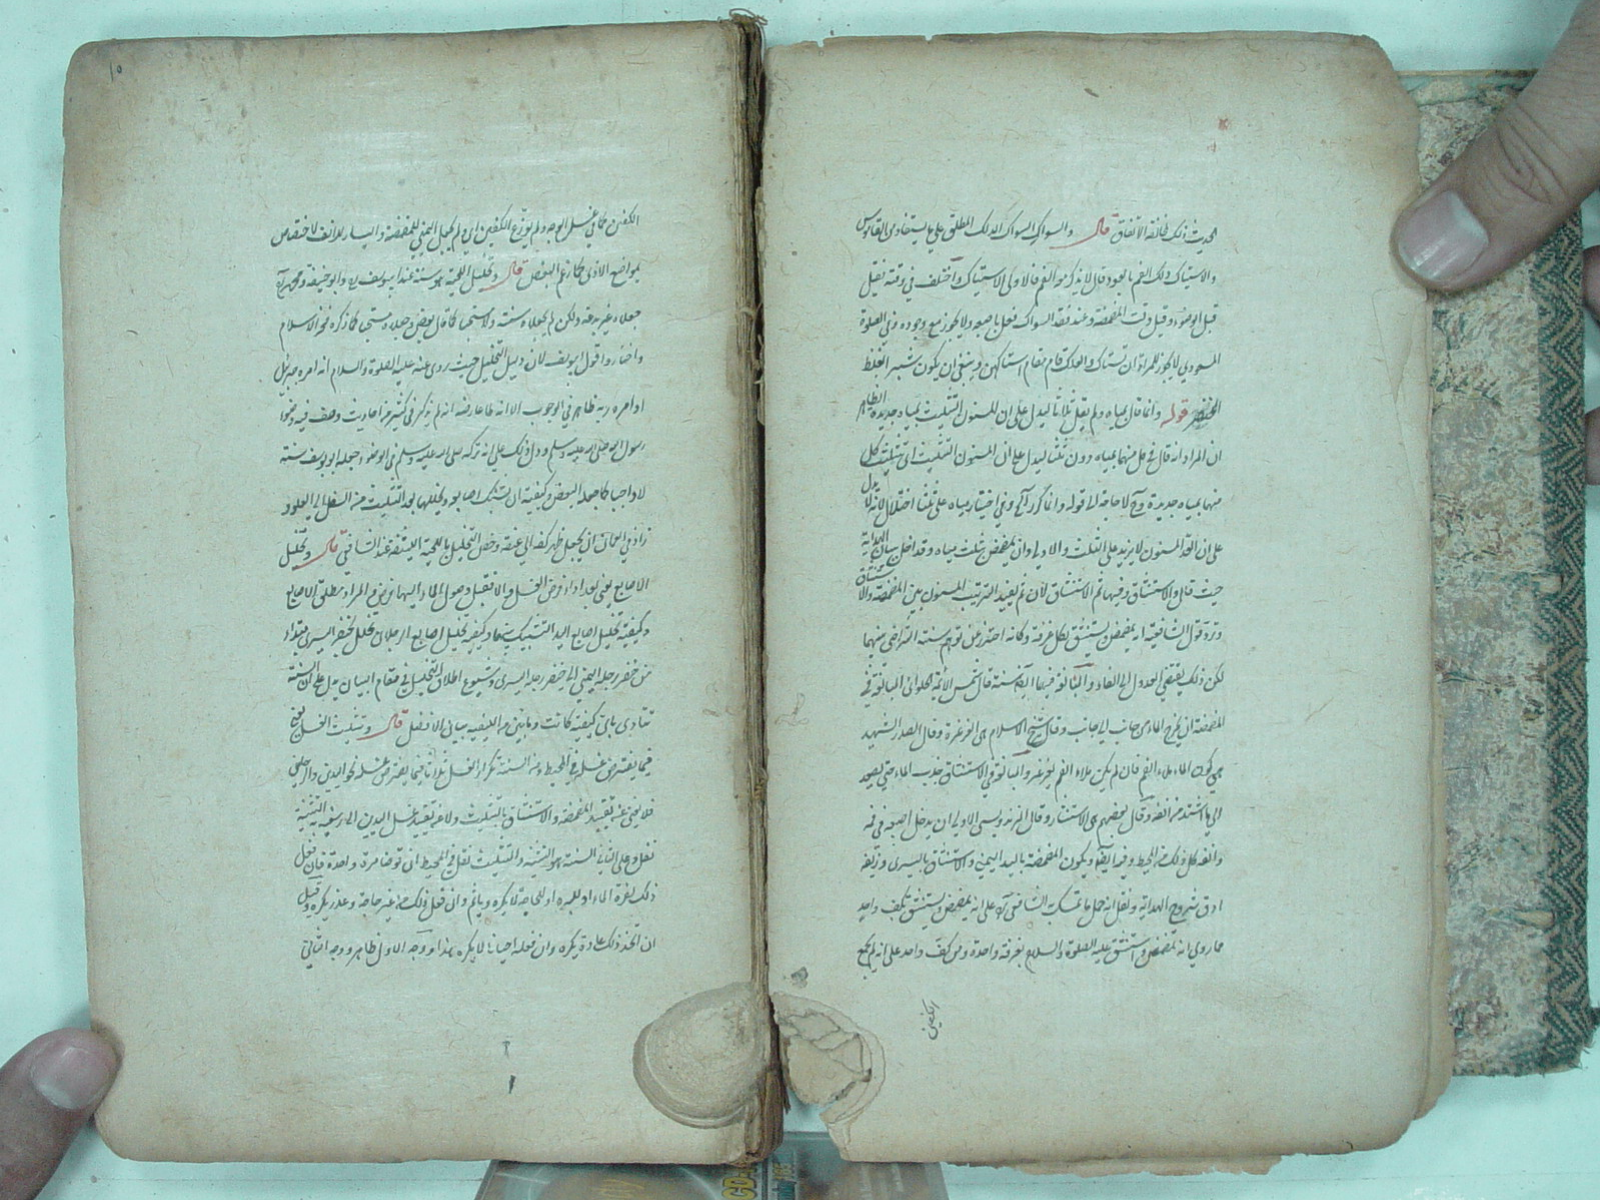 الحديث ذلك فخالفه الاتفاق قال والسواك السواك الدلك المطلق على ما يستفاد من القاموس
والاستياك ذلك الفم بالعود قال لا يذكر معه الفم فالاولى الاستياك واختلف في وقته فقيل
قبل الوضوء وقيل وقت المضمضة وعند فقد السواك تفعل باصبعه ولا يجوز مع وجوده وفي الصلوة
المسعودي لا يجوز للمراة ان تستاك والعلك قام مقام استياكهن وينبغي ان يكون شبر الغلظ
الخنصر قوله وانما قال بمياه ولم يقل ثلاثا ليدل على ان المسنون التثليث بمياه جديدة الظاهر
ان المراد انه قال في كل منهما بمياه دون ثلثا ليدل على ان المسنون التثليث اي تثليث كل
منهما بمياه جديدة وح لا حاجة الى قوله وانما كرر آه وفي اختيار مياه على ثلثا اختلال لانه لا يدل
على ان العدد المسنون لا يزيد على الثلث والاولى وان يمضمض بثلث مياه وقد اخل ببيان الهداية
حيث قال والاستنشاق وفيها ثم الاستنشاق لان ثم يفيد الترتيب المسنون بين المضمضة والاستنشاق
وترد قول الشافعية انه يمضمض ويستنشق بكل غرفة وكانه احترز عن توهم سنته التراخي بينهما
لكن ذلك يقتضي العدول الى الفاء والمبالغة فيهما ايضا سنة قال شمس الائمة الحلواني المبالغة في
المضمضة ان يخرج الماء من جانب الى جانب وقال شيخ الاسلام هي الغرغرة وقال الصدر الشهيد
هي كون الماء ملاء الفم فان لم يكن ملاء الفم يغرغر والمبالغة في الاستنشاق جذب الماء حتى يصعد
الى ما اشتد من انفه وقال بعضهم هي الاستنثار وقال الزندويسي الاولى ان يدخل اصبعه في فمه
وانفه كل ذلك من المحيط وفيه ايضا ويكون المضمضة باليد اليمنى والاستنشاق باليسرى وزيفه
ادق شروح الهداية ونقل انه حمل ما تمسك به الشافعي آه على انه يمضمض ويستنشق بكف واحد
مما روي انه تمضمض واستنشق عليه الصلوة والسلام بغرفة واحدة ومن كف واحد على انه لم يجمع
الكفين
١٥
الكفين كما في غسل الوجه ولم يوزع الكفين اي ولم يجعل اليمنى للمضمضة واليسار للانف لاختصاص
بمواضع الاذى كما زعم البعض قال وتخليل اللحية هو سنة عند ابي يوسف ره وابو حنيفة ومحمد ره
جعلاه غير بدعة ولكن لم يجعلاه سنة ولا مستحبا كما قال بعض وجعلاه مستحبا كما ذكره فخر الاسلام
واختاروا قول ابي يوسف لان دليل التخليل حيث روى عنه عليه الصلوة والسلام انه امره جبرئيل
او امره ربه ظاهر في الوجوب الا انه لما عارضه انه لم يذكر في كثير من احاديث وصف فيه وضوء
رسول الله صلى الله عليه وسلم ودل ذلك على انه تركه صلى الله عليه وسلم في الوضوء جعله ابو يوسف سنة
لا واجبا كما جعله البعض وكيفيته ان تشبك اصابعه ويخللها بعد التثليث من السفل الى العلو و
زاد في العمان ان يجعل ظهر كفه الى عنقه وخص التخليل باللحية الكثيفة عند الشافعي قال وتخليل
الاصابع يعني بعد اداء فرض الغسل والا فقبل وصول الماء اليها فرض والمراد مطلق الاصابع
وكيفية تخليل اصابع اليد التشبيك بينهما وكيفية تخليل اصابع الرجلان يخلل بخنصر اليسرى مبتداء
من خنصر رجله اليمنى الى خنصر رجله اليسرى وشيوع اطلاق التخليل في مقام البيان يدل على ان السنة
تتادى باي كيفية كانت وما بين من الكيفية بيان الافضل قال وتثليث الغسل يعني
فيما يفترض غسله في المحيط ومن السنة تكرار الغسل ثلاثا فيما يفترض غسله نحو اليدين والرجلين
فلا يغني عنه تقييد المضمضة والاستنشاق بالتثليث ولا عن تقييد غسل اليدين الى رسغيه بتثنية
تفل وعلى الثانية السنة هو التثنية والتثليث نقل في المحيط ان توضا مرة واحدة فان فعل
ذلك لعزة الماء او للبرد او للحاجة لا يكره ولا ياثم وان فعل ذلك من غير حاجة وعذر يكره وقيل
ان اتخذ ذلك عادة يكره وان فعله احيانا لا يكره هذا ووجه الاول ظاهر ووجه الثاني